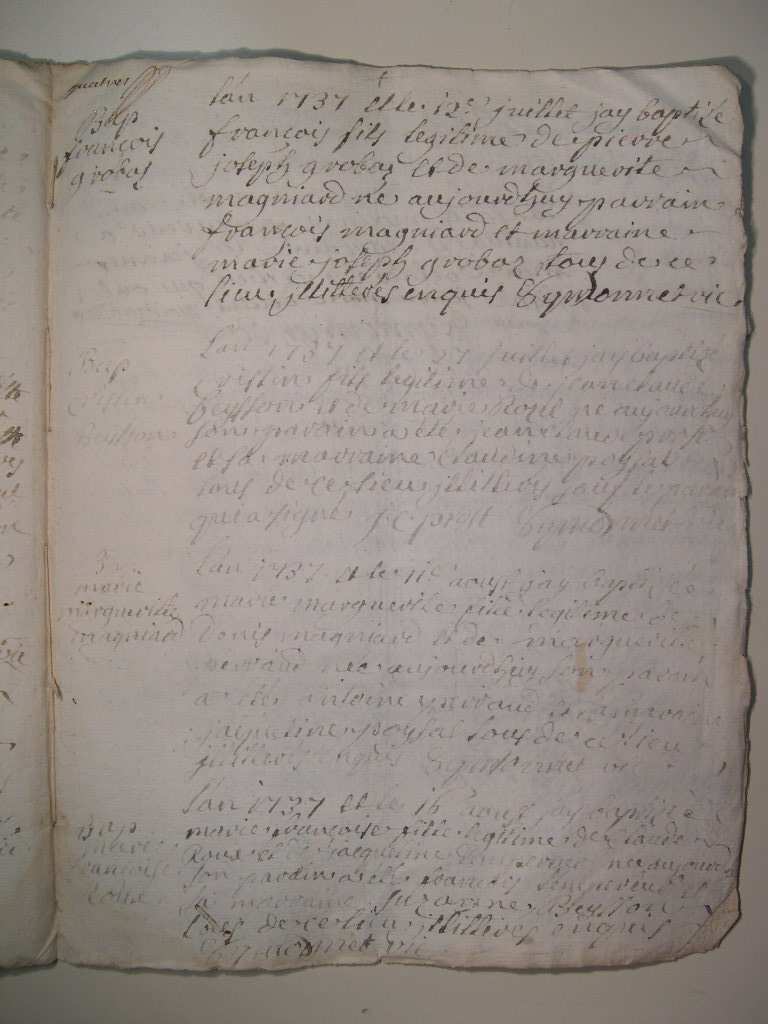 Bap
françois
grobas
Lan 1737 et le 12e juillet jay baptise
françois fils legitime de pierre
joseph grobas et de marguerite
magniard né aujourdhuy parrain
françois magniard et marraine
marie joseph grobaz tous de ce
lieu illitterés enquis Symonnet vic
Bap
Besson
Lan 1737 et le 27 juillet jay baptize
fils legitime de jean claude
Besson et de marie né aujourdhuy
son parrain a eté jean claude
et sa marraine claudine poysat
tous de ce lieu illitteres sauf le parrain
qui a signé j c prost Symonnet vic
marie
marguerite
magniard
Lan 1737 et le 11e aoust jay baptisé
marie marguerite fille legitime de
Denis magniard et de marguerite
perraud nee aujourdhuy son parain
a eté antoine perraud et sa maraine
jacqueline poysat tous de ce lieu
illitterés enquis Symonnet vic
Bap
marie
françoise
Roux
Lan 1737 et le aoust jay baptisé
marie françoise fille legitime de claude
Roux et de jacqueline nee aujourdhuy
son parain a eté francois et
sa marraine Suzanne Besson
tous de ce lieu illitteres enquis
Symonnet vic